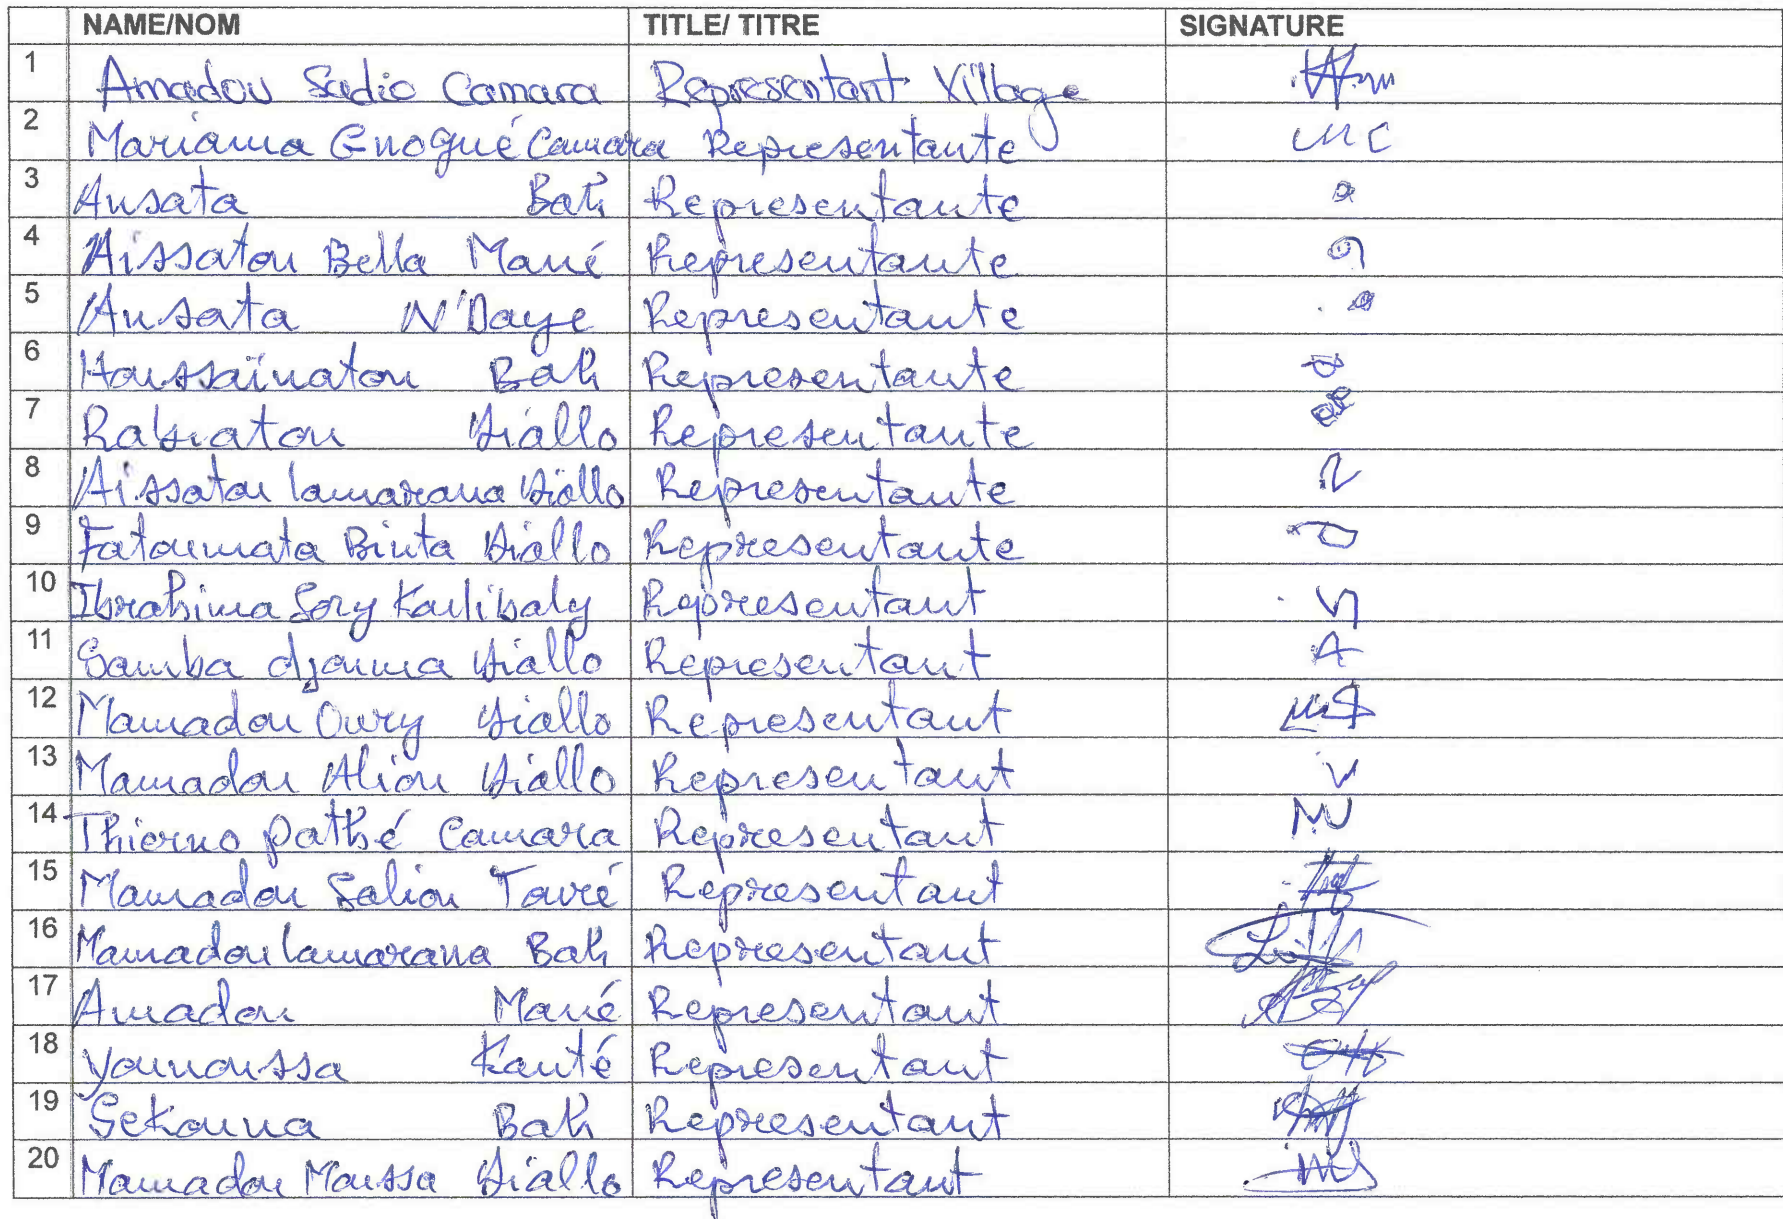 NAME/NOM TITLE/ TITRE SIGNATURE
1 Amadou Sadio Camara Representant Village
2 Mariama Gnogué Camara Representante MC
3 Ansata Bah Representante
4 Aissatou Bella Mané Representante
5 Ansata N'Daye Representante
6 Houssaïnatou Bah Representante
7 Rabiatou Diallo Representante
8 Aissatou lamarana Diallo Representante
9 Fatoumata Binta Diallo Representante
10 Ibrahima Sory Koulibaly Representant
11 Samba djouma Diallo Representant A
12 Mamadou Oury Diallo Representant
13 Mamadou Aliou Diallo Representant V
14 Thierno pathé Camara Representant
15 Mamadou Saliou Touré Representant
16 Mamadou lamarana Bah Representant
17 Amadou Mané Representant
18 Younoussa Kanté Representant
19 Sekouna Bah Representant
20 Mamadou Moussa Diallo Representant